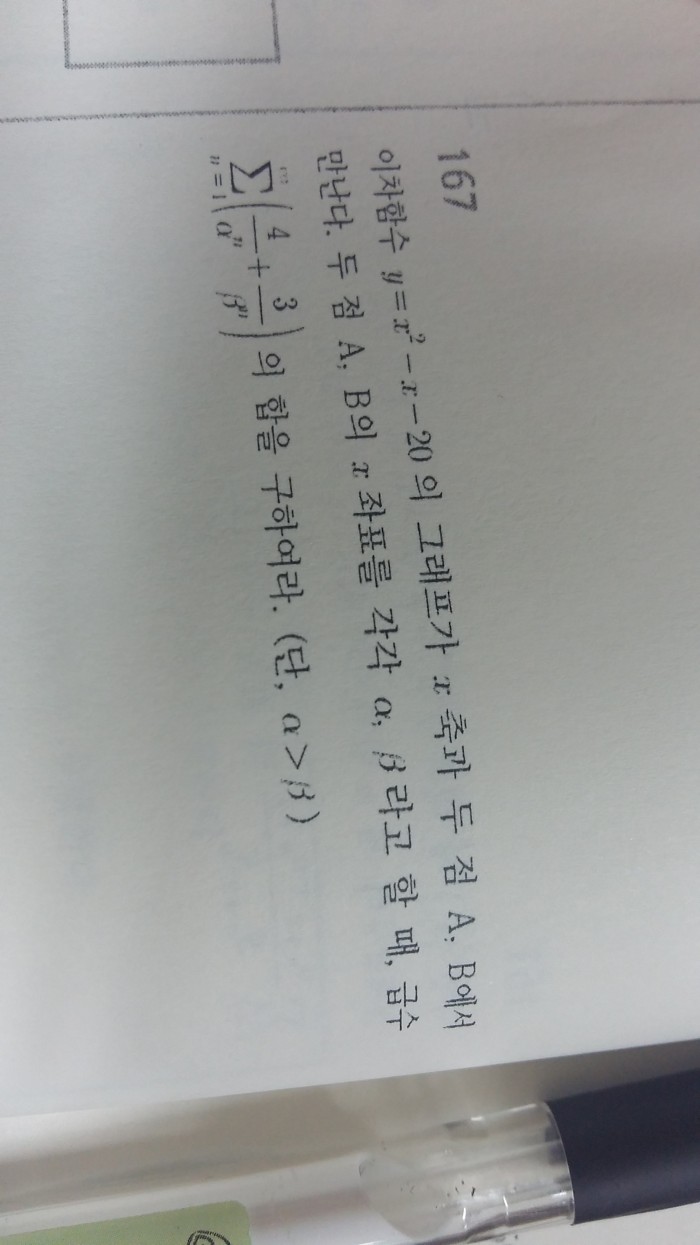 167
이차함수 y=x²-x-20의 그래프가 x축과 두 점 A, B에서
만난다. 두 점 A, B의 x좌표를 각각 α, β라고 할 때, 급수
∑_{n=1}^{∞}(4/αⁿ + 3/βⁿ)의 합을 구하여라. (단, α>β)